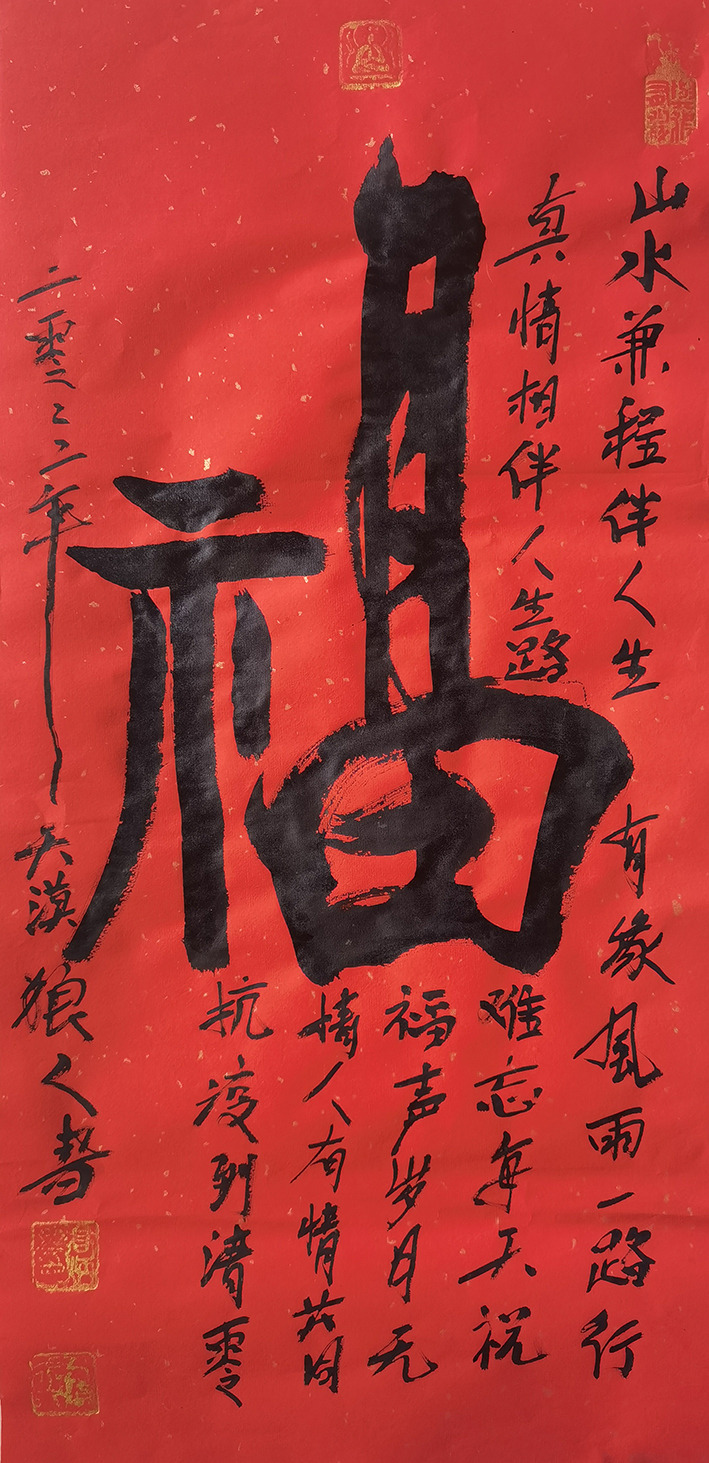 山水兼程伴人生 有缘風雨一路行
真情相伴人生路
难忘每天祝
福声岁月无
情人有情共同
抗疫到清零
福
二零二二年 天漠狼人